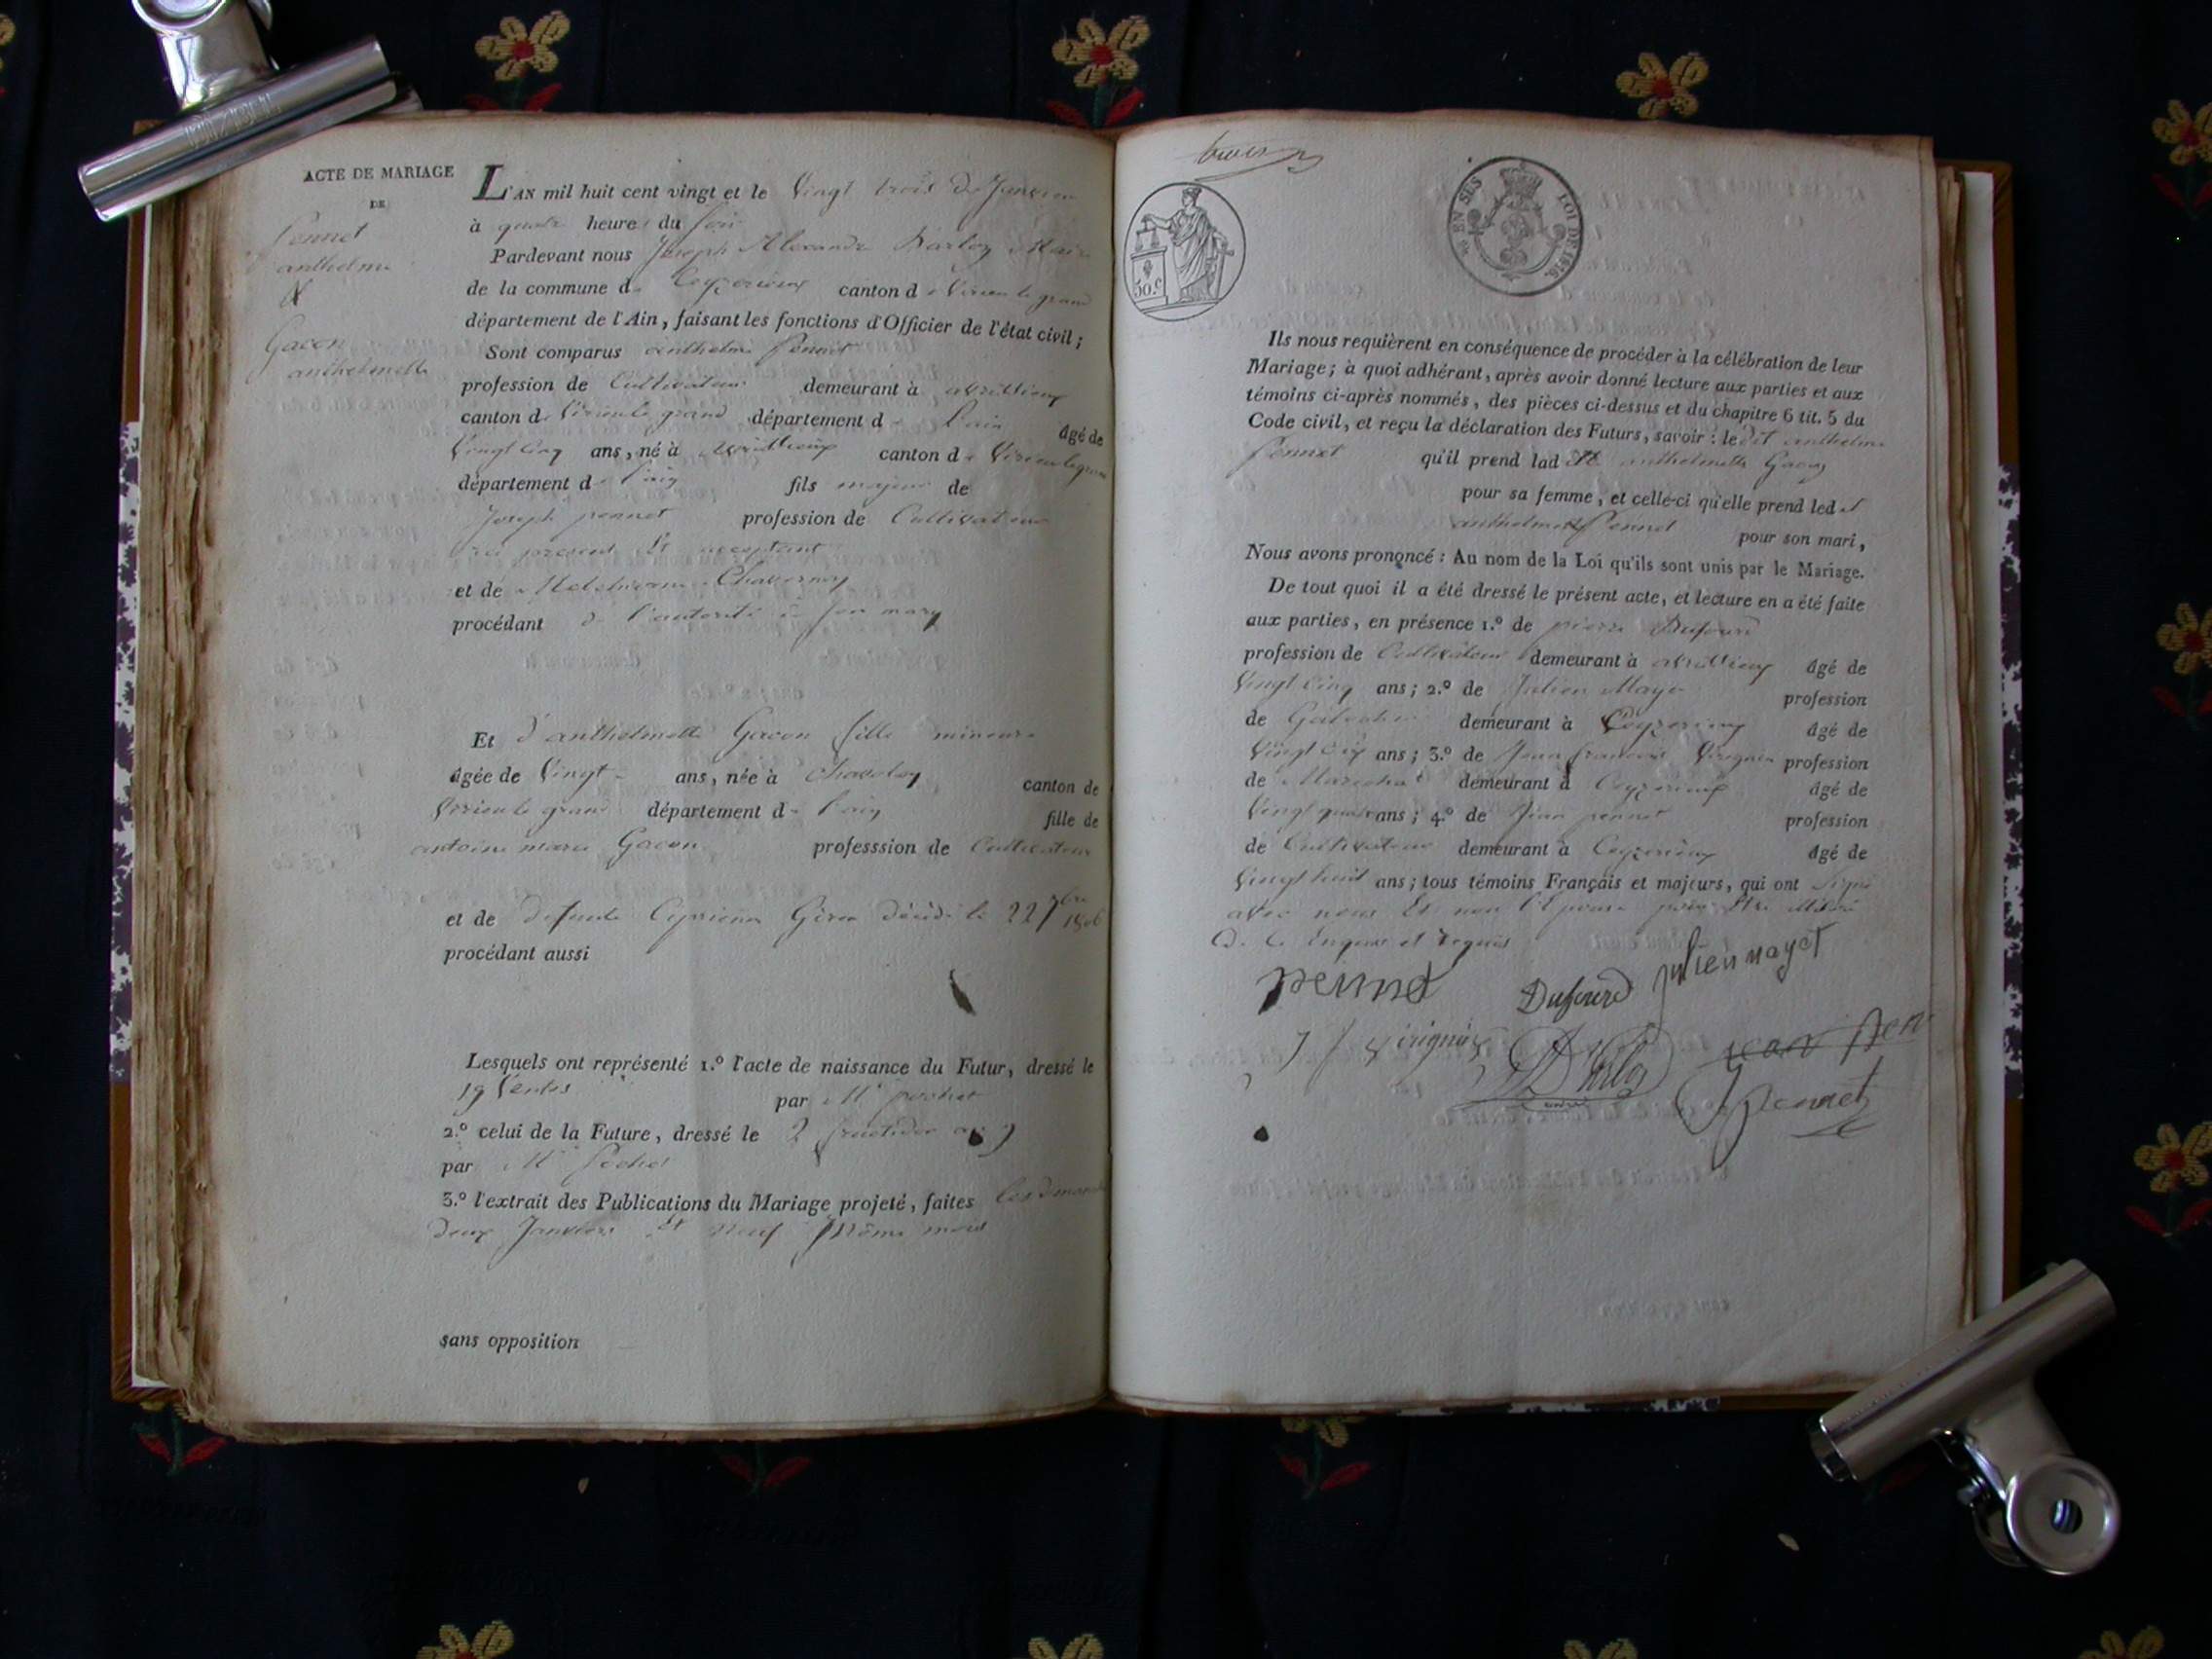 ACTE DE MARIAGE
DE
pennet
anthelme
&
Gacon
anthelmette
L'AN mil huit cent vingt et le Vingt trois De Janvier
à quatre heures du soir
Pardevant nous Joseph Alexandre Maire
de la commune de Ceyzerieux canton de Virieu le grand
département de l'Ain, faisant les fonctions d'Officier de l'état civil ;
Sont comparus anthelme pennet
profession de Cultivateur demeurant à
canton de Virieu le grand département de l'ain âgé de
Vingt Cinq ans, né à canton de Virieu le grand
département de l'ain fils majeur de
Joseph pennet profession de Cultivateur
ici present Et acceptant
et de
procédant de l'autorité de son mary
Et d'anthelmette Gacon fille mineure
âgée de Vingt ans, née à canton de
Virieu le grand département de l'ain fille de
antoine marie Gacon professsion de Cultivateur
et de défunte décédé le 22 7bre 1806
procédant aussi
Lesquels ont représenté 1.º l'acte de naissance du Futur, dressé le
19 Ventos par Mr pochet
2.º celui de la Future, dressé le 2 fructidor an 7
par Mr Pochet
3.º l'extrait des Publications du Mariage projeté, faites Les dimanche
deux Janvier Et neuf même mois
sans opposition
trois
50.C
EN SUS
LOI DE 1816.
Ils nous requièrent en conséquence de procéder à la célébration de leur
Mariage ; à quoi adhérant, après avoir donné lecture aux parties et aux
témoins ci-après nommés, des pièces ci-dessus et du chapitre 6 tit. 5 du
Code civil, et reçu la déclaration des Futurs, savoir : le dit anthelme
pennet qu'il prend lad te anthelmette Gacon
pour sa femme, et celle-ci qu'elle prend led t
anthelme pennet pour son mari,
Nous avons prononcé : Au nom de la Loi qu'ils sont unis par le Mariage.
De tout quoi il a été dressé le présent acte, et lecture en a été faite
aux parties, en présence 1.º de pierre Dufourd
profession de Cultivateur demeurant à âgé de
Vingt Cinq ans ; 2.º de Julien Mayet profession
de demeurant à Ceyzerieux âgé de
Vingt ans ; 3.º de Jean francois profession
de Marechal demeurant à Ceyzerieux âgé de
Vingt quatre ans ; 4.º de Jean pennet profession
de Cultivateur demeurant à Ceyzerieux âgé de
Vingt huit ans ; tous témoins Français et majeurs, qui ont signé
avec nous Et non l'Epouse pour Etre
de ce Enquise et requis
pennet Dufourd julien mayet
jean pen
J pennet